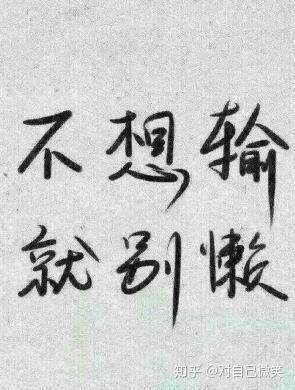 不想输
就别懒
知乎 @对自己微笑